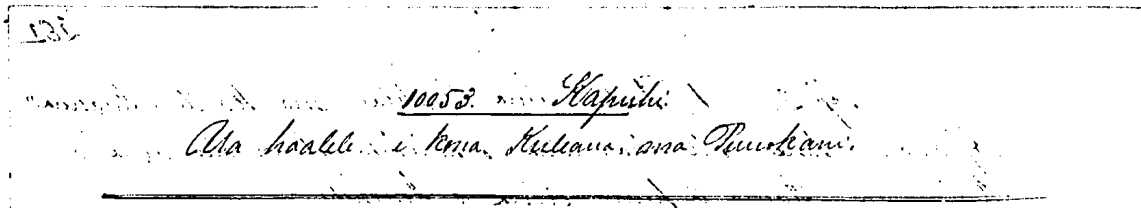 10053. Kapuhi
Ua haalele i kona Kuleana ma Puuokani.